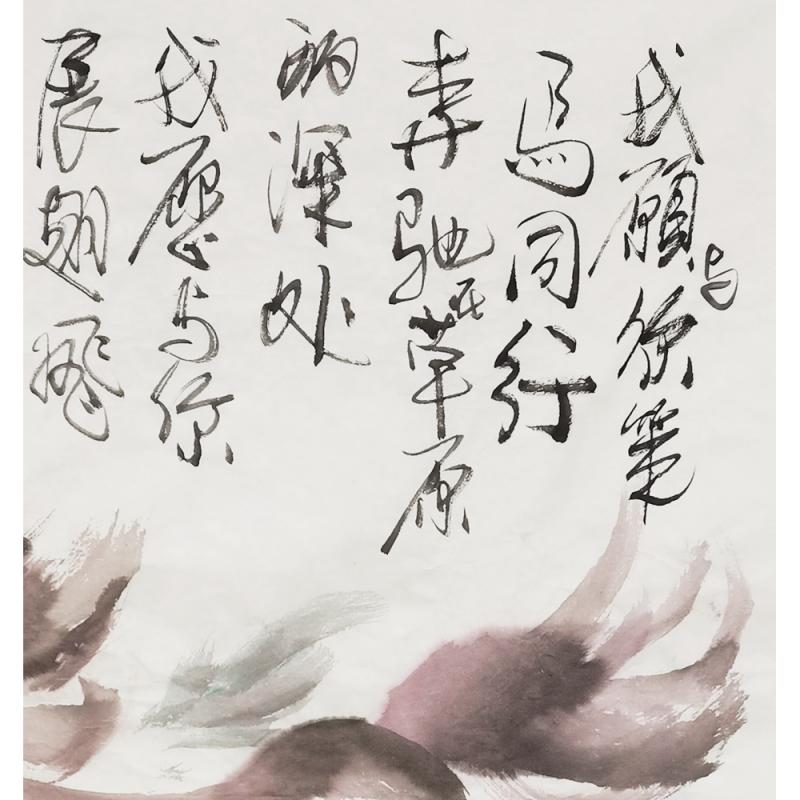 我愿与你策
马同行
奔驰在草原
的深处
我愿与你
展翅飛